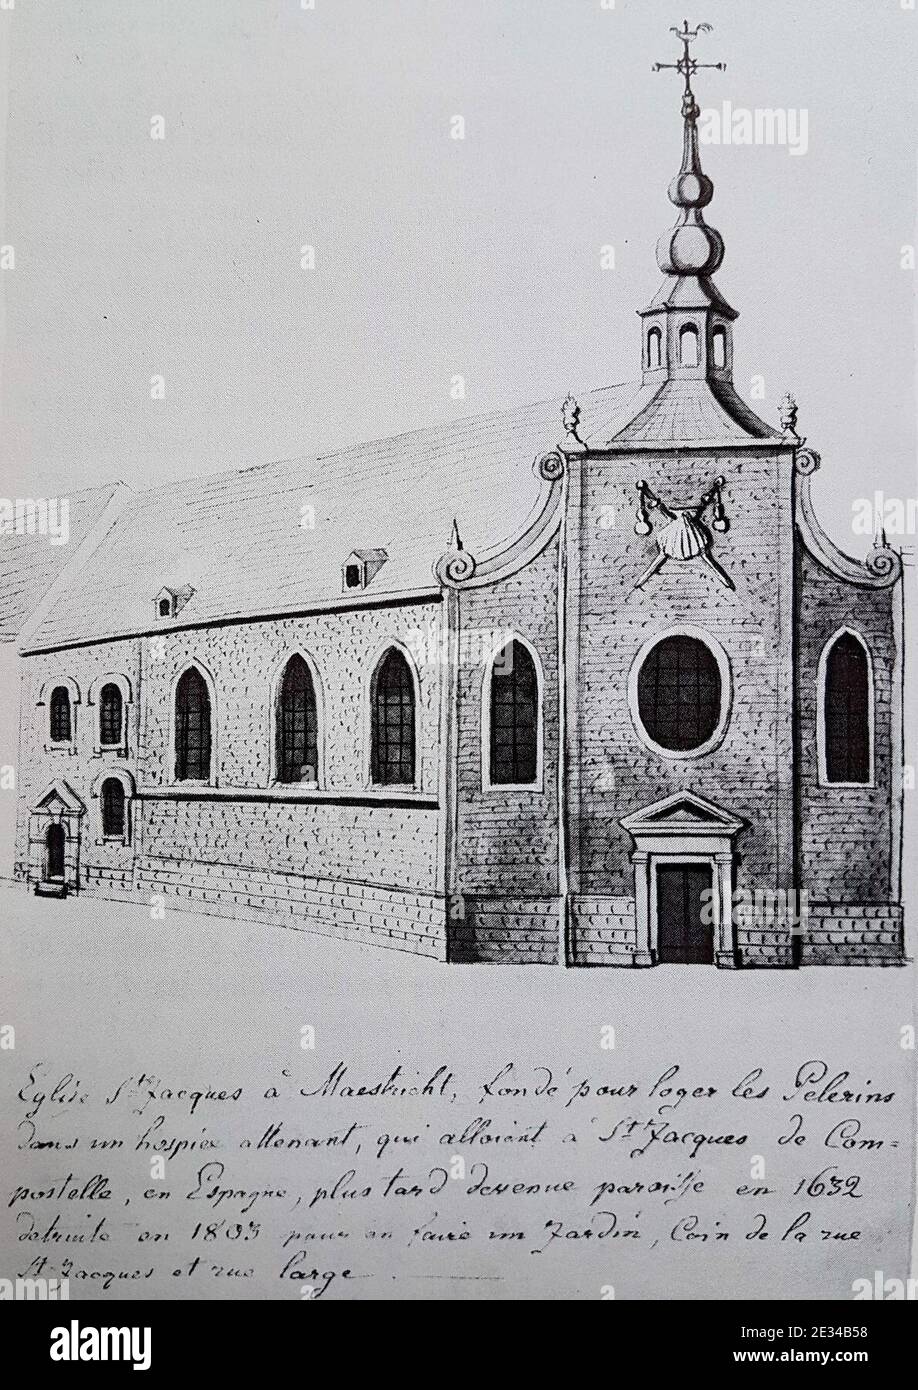 Eglise St Jacques à Maestricht, fondé pour loger les Pelerins
dans un hospice attenant, qui alloient à St Jacques de Com=
postelle, en Espagne, plus tard devenue paroisse en 1632
detruite en 1803 pour en faire un Jardin, Coin de la rue
St Jacques et rue large.
alamy
alamy
alamy
alamy
alamy
a
a
a
a
alamy
Image ID: 2E34B58
www.alamy.com